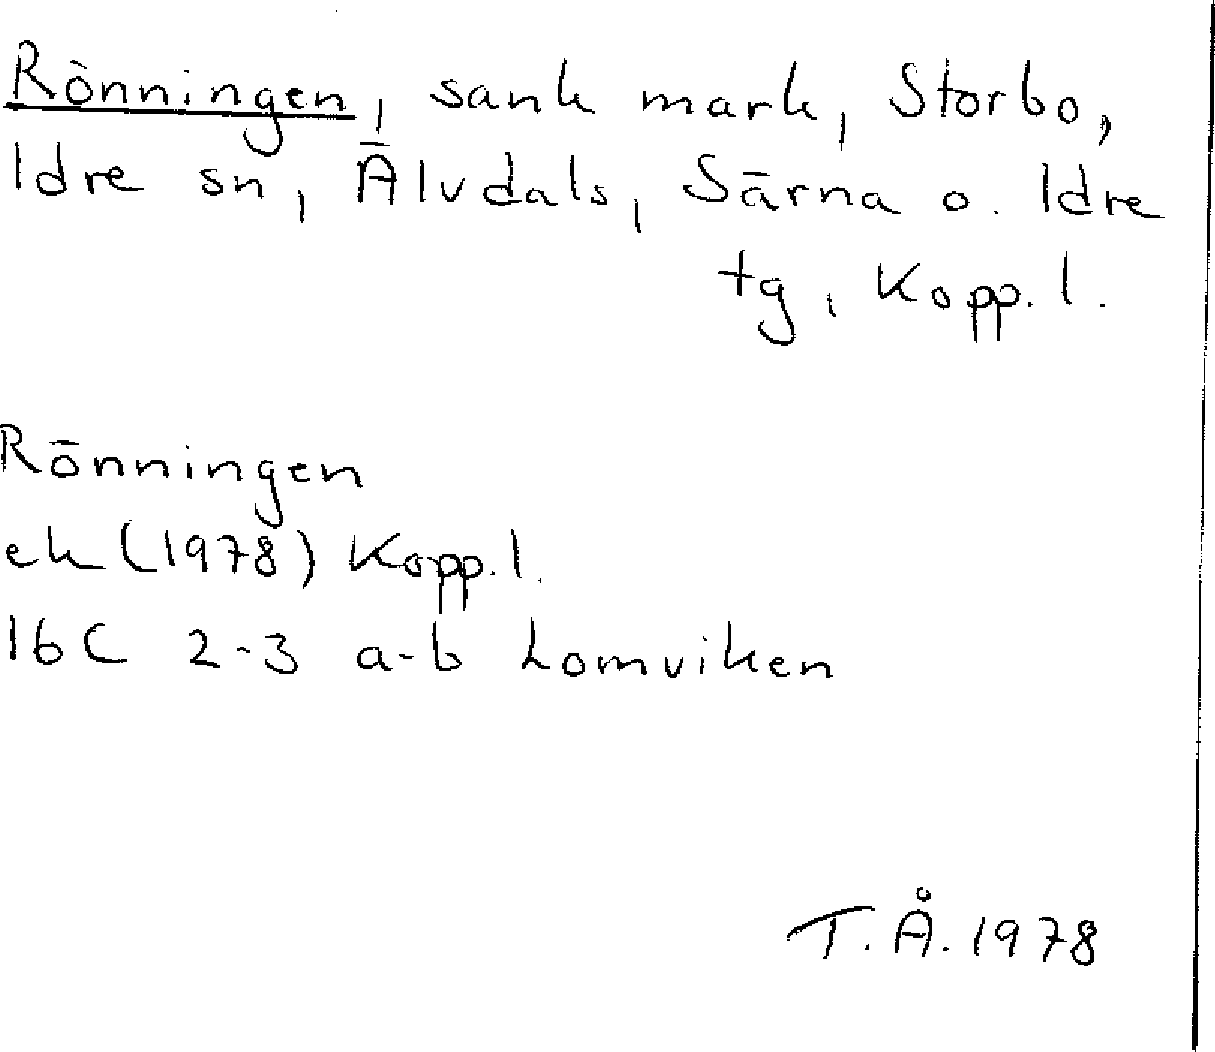 Rönningen, sank mark, Storbo,
Idre sn, Älvdals, Särna o. Idre
tg, Kopp. l.
Rönningen
ek (1978) Kopp. l.
16C 2-3 a-b Lomviken
T.Å. 1978